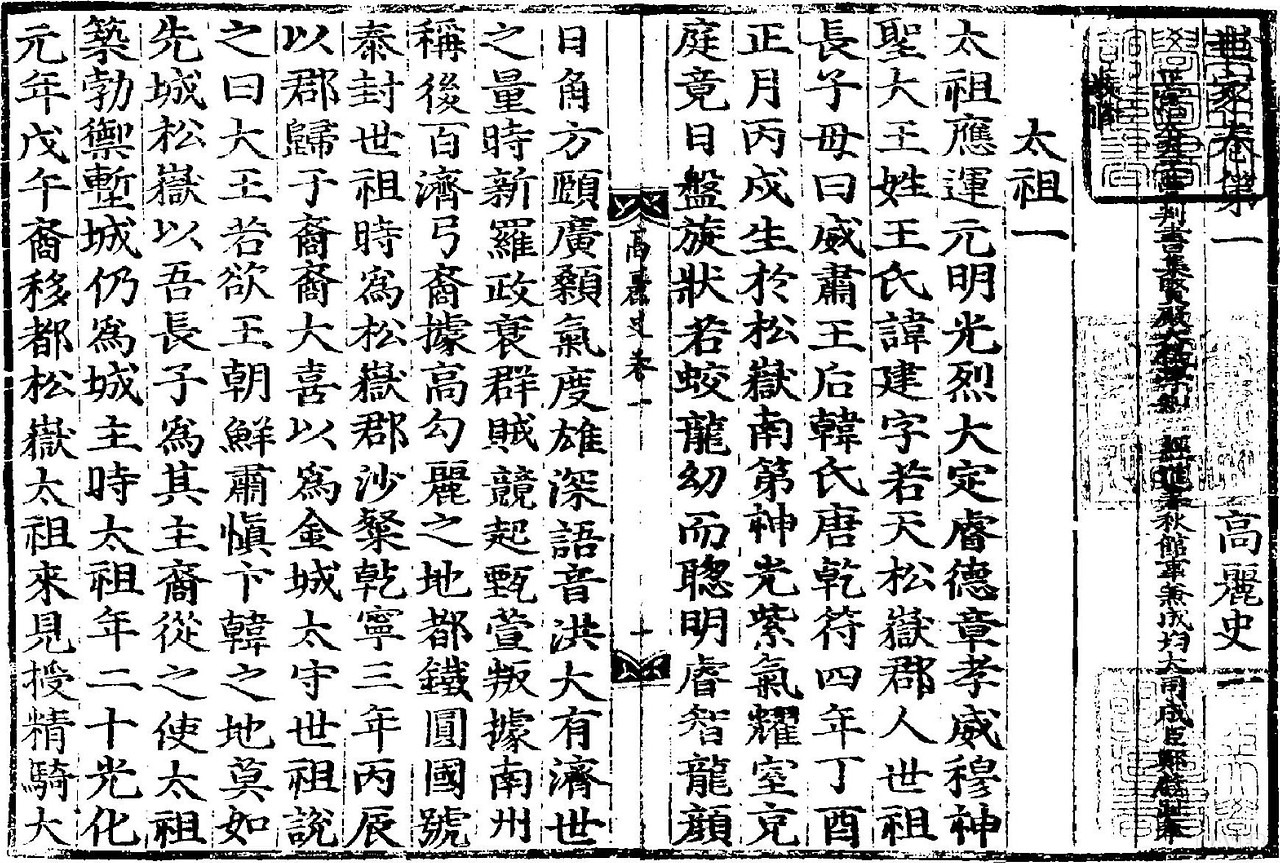 世家卷第一 高麗史一
正憲大夫工曹判書集賢殿大提學知 經筵春秋館事兼成均大司成臣鄭麟趾奉
教修
太祖一
太祖應運元明光烈大定睿德章孝威穆神
聖大王姓王氏諱建字若天松嶽郡人世祖
長子母曰威肅王后韓氏唐乾符四年丁酉
正月丙戌生於松嶽南第神光紫氣耀室充
庭竟日盤旋狀若蛟龍幼而聦明睿智龍顏
高麗史卷一
日角方頤廣顙氣度雄深語音洪大有濟世
之量時新羅政衰群賊競起甄萱叛據南州
稱後百濟弓裔據高勾麗之地都鐵圓國號
泰封世祖時爲松嶽郡沙粲乾寧三年丙辰
以郡歸于裔裔大喜以爲金城太守世祖說
之曰大王若欲王朝鮮肅愼卞韓之地莫如
先城松嶽以吾長子爲其主裔從之使太祖
築勃禦塹城仍爲城主時太祖年二十光化
元年戊午裔移都松嶽太祖來見授精騎大